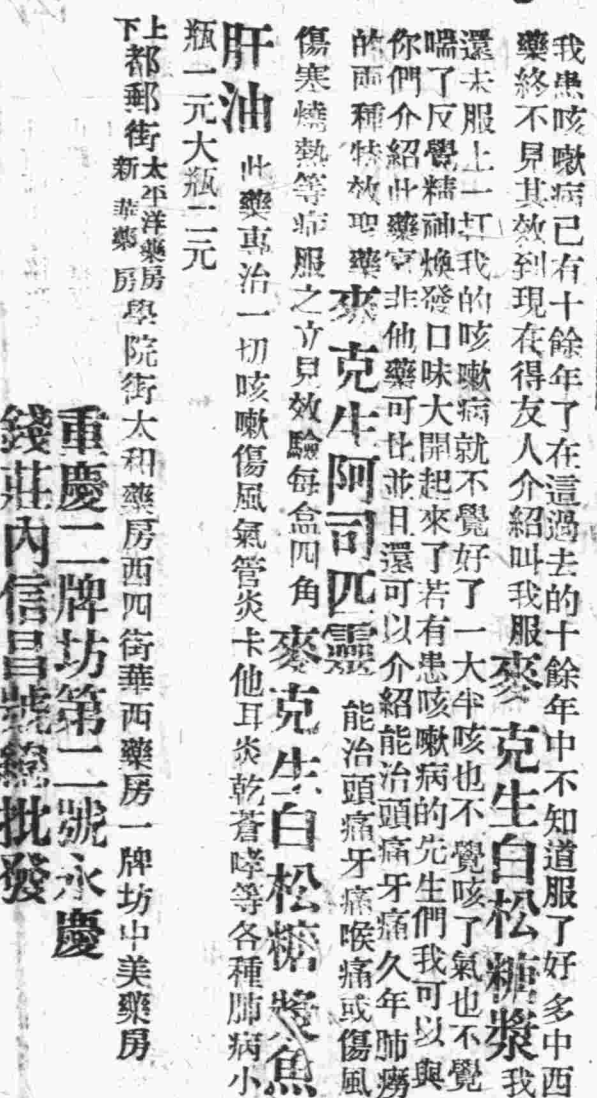 我患咳嗽病已有十餘年了在這過去的十餘年中不知道服了好多中西
藥終不見其效到現在得友人介紹叫我服麥克生白松糖漿我
還未服上一打我的咳嗽病就不覺好了一大半咳也不覺咳了氣也不覺
喘了反覺精神煥發口味大開起來了若有患咳嗽病的先生們我可以與
你們介紹此藥實非他藥可比並且還可以介紹能治頭痛牙痛久年肺癆
的兩種特效聖藥麥克生阿司匹靈能治頭痛牙痛喉痛或傷風
傷寒燒熱等症服之立見效驗每盒四角麥克生白松糖漿魚
肝油此藥專治一切咳嗽傷風氣管炎卡他耳炎乾蒼哮等各種肺病小
瓶一元大瓶二元
上下都郵街太平洋藥房新華藥房學院街太和藥房西四街華西藥房一牌坊中美藥房
重慶二牌坊第二號永慶
錢莊內信昌號總批發